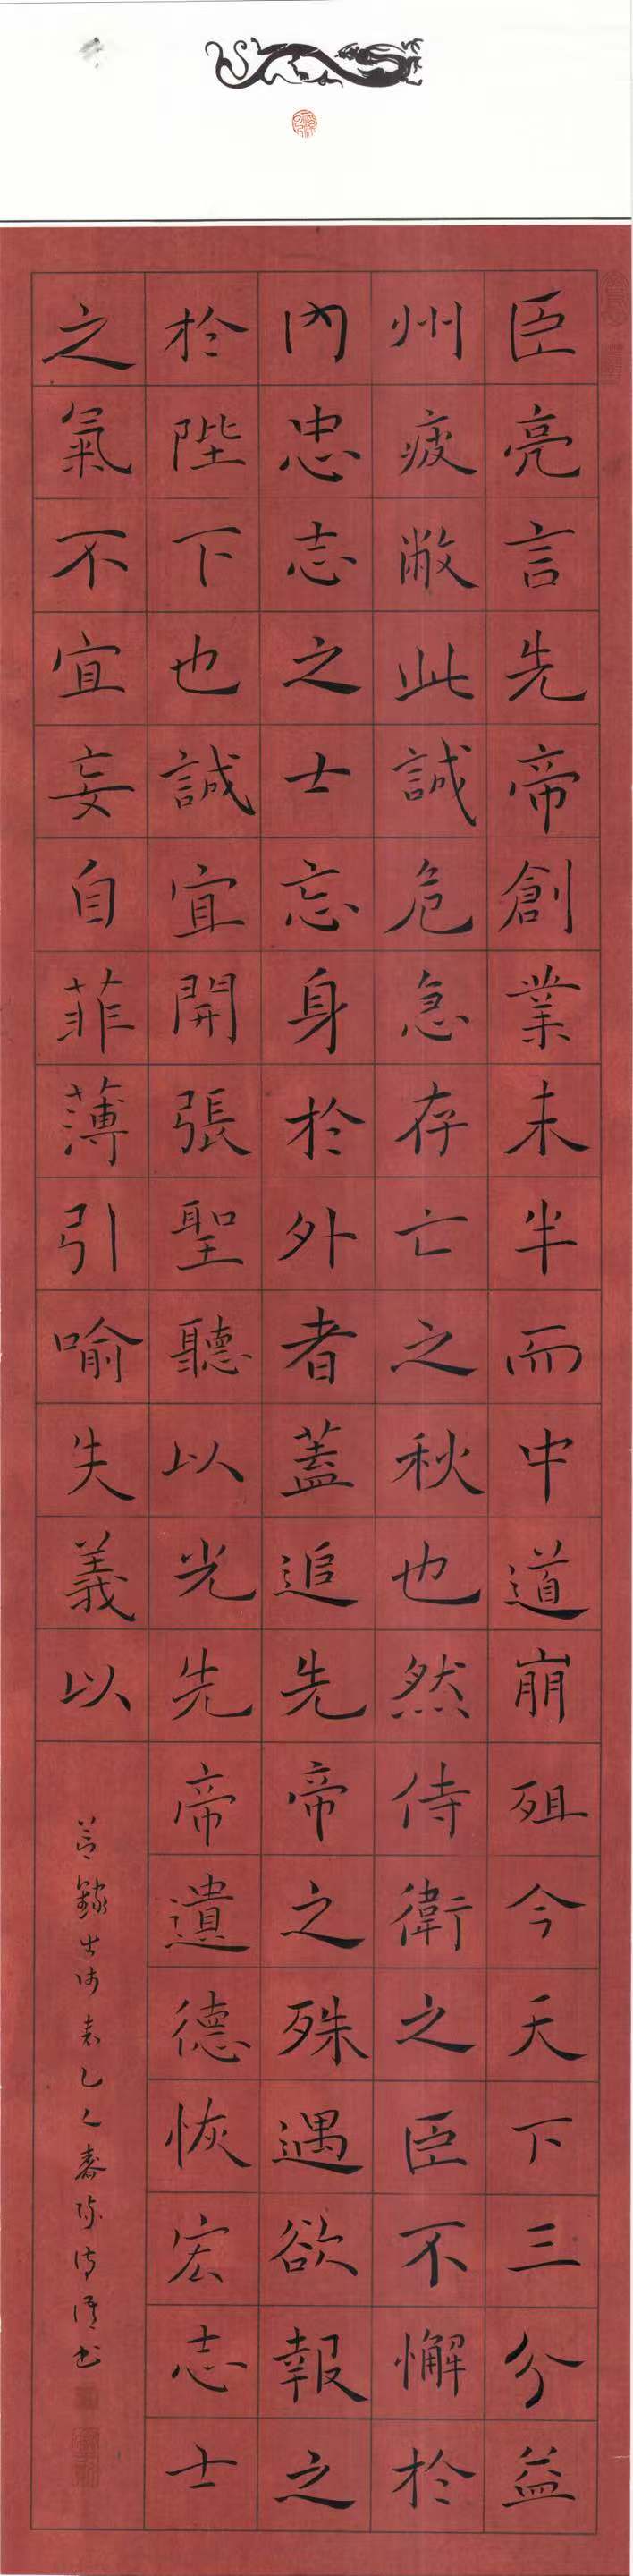 臣亮言先帝創業未半而中道崩殂今天下三分益
州疲敝此誠危急存亡之秋也然侍衛之臣不懈於
內忠志之士忘身於外者蓋追先帝之殊遇欲報之
於陛下也誠宜開張聖聽以光先帝遺德恢宏志士
之氣不宜妄自菲薄引喻失義以
錄出師表乙巳春陳
書